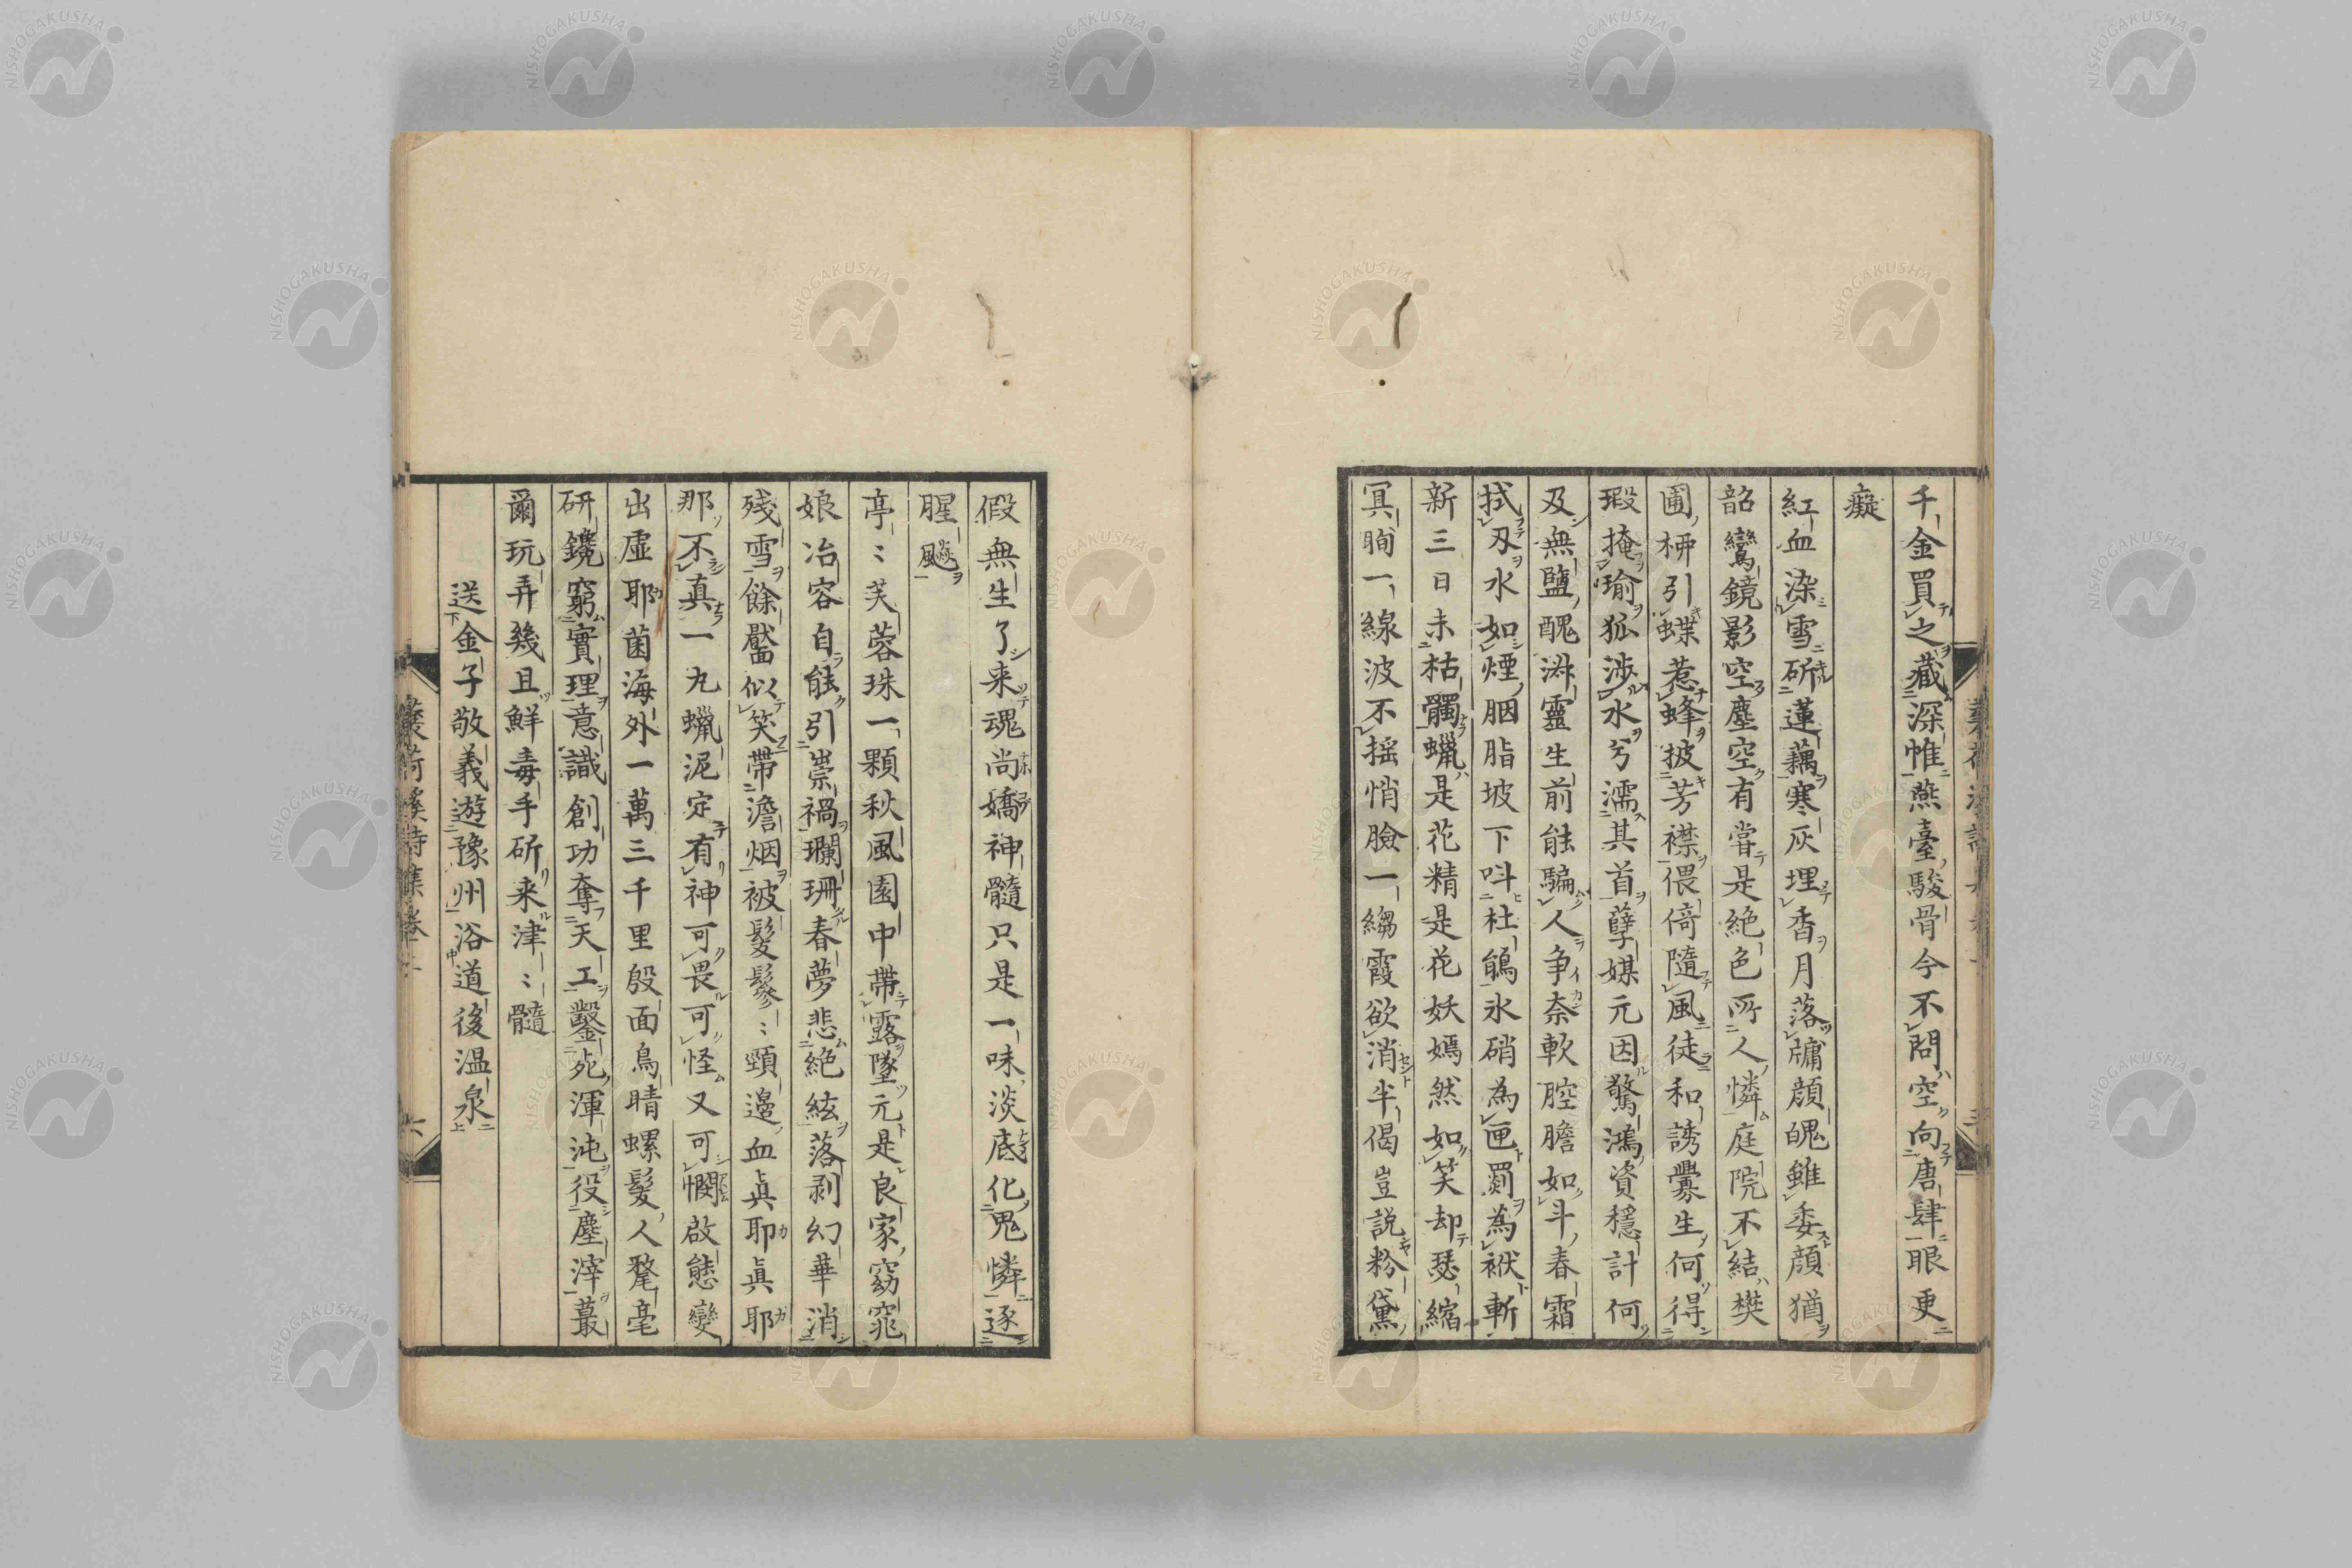 千金買之藏深帷燕臺駿骨今不問空向唐肆眼更
癡
紅血染雪斫蓮藕寒灰埋香月落牗顔魄雖委顔猶
韶鸞鏡影空塵空有嘗是絶色所人憐庭院不結樊
圃栁引蝶惹蜂披芳襟偎倚隨風徒和誘釁生何得
瑕掩瑜狐渉水兮濡其首孽媒元因驚鴻資穏計何
及無鹽醜渕靈生前能騙人争奈軟腔膽如斗春霜
拭刃水如煙胭脂坡下呌杜鵑氷硝為匣罽為袱斬
新三日未枯髑蠟是花精是花妖嫣然如笑却瑟縮
冥眴一線波不揺悄臉一縐霞欲消半偈豈説粉黛
假無生了来魂尚嬌神髓只是一味淡底化鬼憐逐
腥飈
亭〻芙蓉珠一顆秋風園中帶露墜元是良家窈窕
娘冶容自能引祟禍瓓珊春夢悲絶絃落剥幻華消
残雪餘靨似笑帶澹烟被髪鬖〻頸邉血眞耶眞耶
那不真一丸蠟泥定有神可畏可怪又可憫啟態變
出虚耶菌海外一萬三千里殷面鳥睛螺髪人氂毫
研鑱窮實理意識創功奪天工鑿死渾沌役塵滓蕞
爾玩弄幾且鮮毒手斫来津〻髓
送金子敬義遊豫州浴道後温泉
六
NISHOGAKUSHA